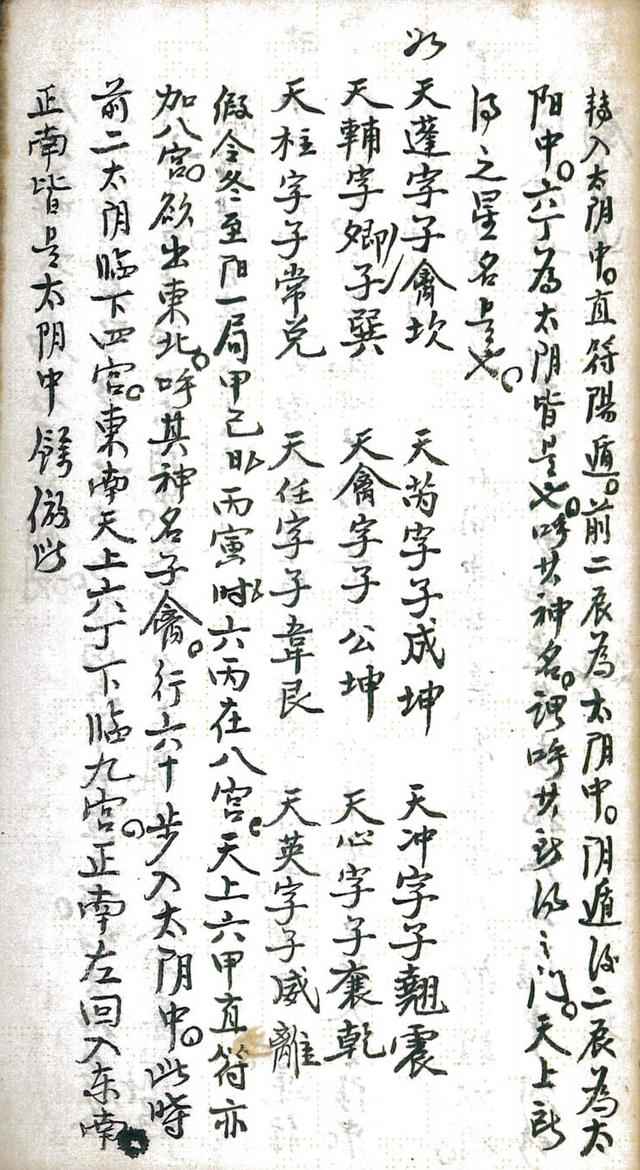 轉入太阴中。直符陽遁。前二辰為太阴中。阴遁後二辰為太
阳中。六丁為太阴皆是也。呼其神名。謂呼其所得之门。天上所
得之星名是也。
以天蓬字子禽坎　天芮字子成坤　天冲字子翹震
天輔字卿子巽　天禽字子公坤　天心字子襄乾
天柱字子常兑　天任字子韋艮　天英字子威離
假令冬至阳一局甲己日丙寅时六丙在八宫。天上六甲直符亦
加八宫。欲出東北。呼其神名子禽。行六十步入太阴中。此時
前二太阴臨下四宫。東南天上六丁下臨九宫。正南左回入东南
正南皆是太阴中 餘倣此